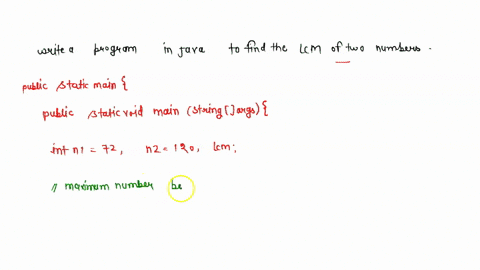 write a program in java to find the LCM of two numbers.
public static main {
public static void main (string [] args) {
int n1 = 72, n2 = 120, lcm;
// maximum number be